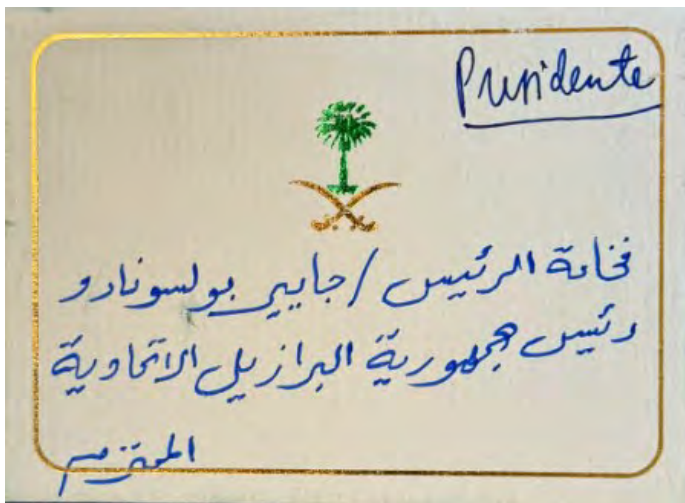 Presidente
فخامة الرئيس / جايير بولسونادو
رئيس جمهورية البرازيل الاتحادية
المحترم